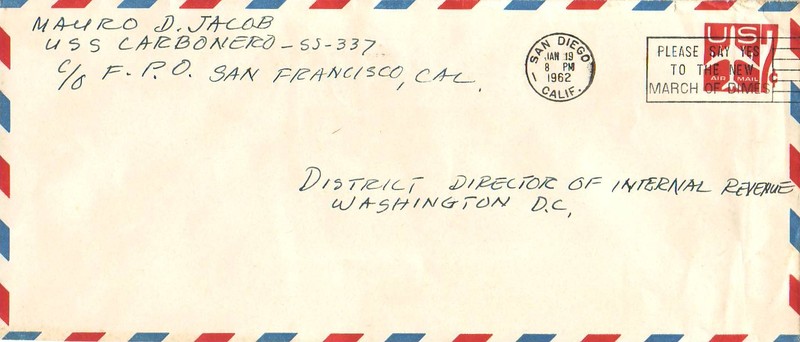 MAURO D. JACOB
USS CARBONERO-SS-337
C/O F.P.O. SAN FRANCISCO, CAL.
SAN DIEGO
JAN 19
8 PM
1962
CALIF.
PLEASE SAY YES
TO THE NEW
MARCH OF DIMES
US
7c
AIR MAIL
DISTRICT DIRECTOR OF INTERNAL REVENUE
WASHINGTON D.C,